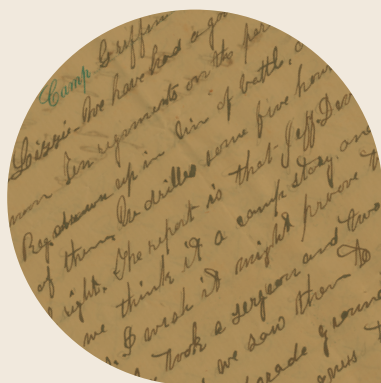 Camp Griffin
Lizzie - We have had a
noon Ten regiments on the
Reg drawn up in line of battle,
of them. We drilled some five hour
right. The report is that Jeff Da
we think it a camp story, and
I wish it might proove t
took a sergeon and two
we saw them to
parade groun